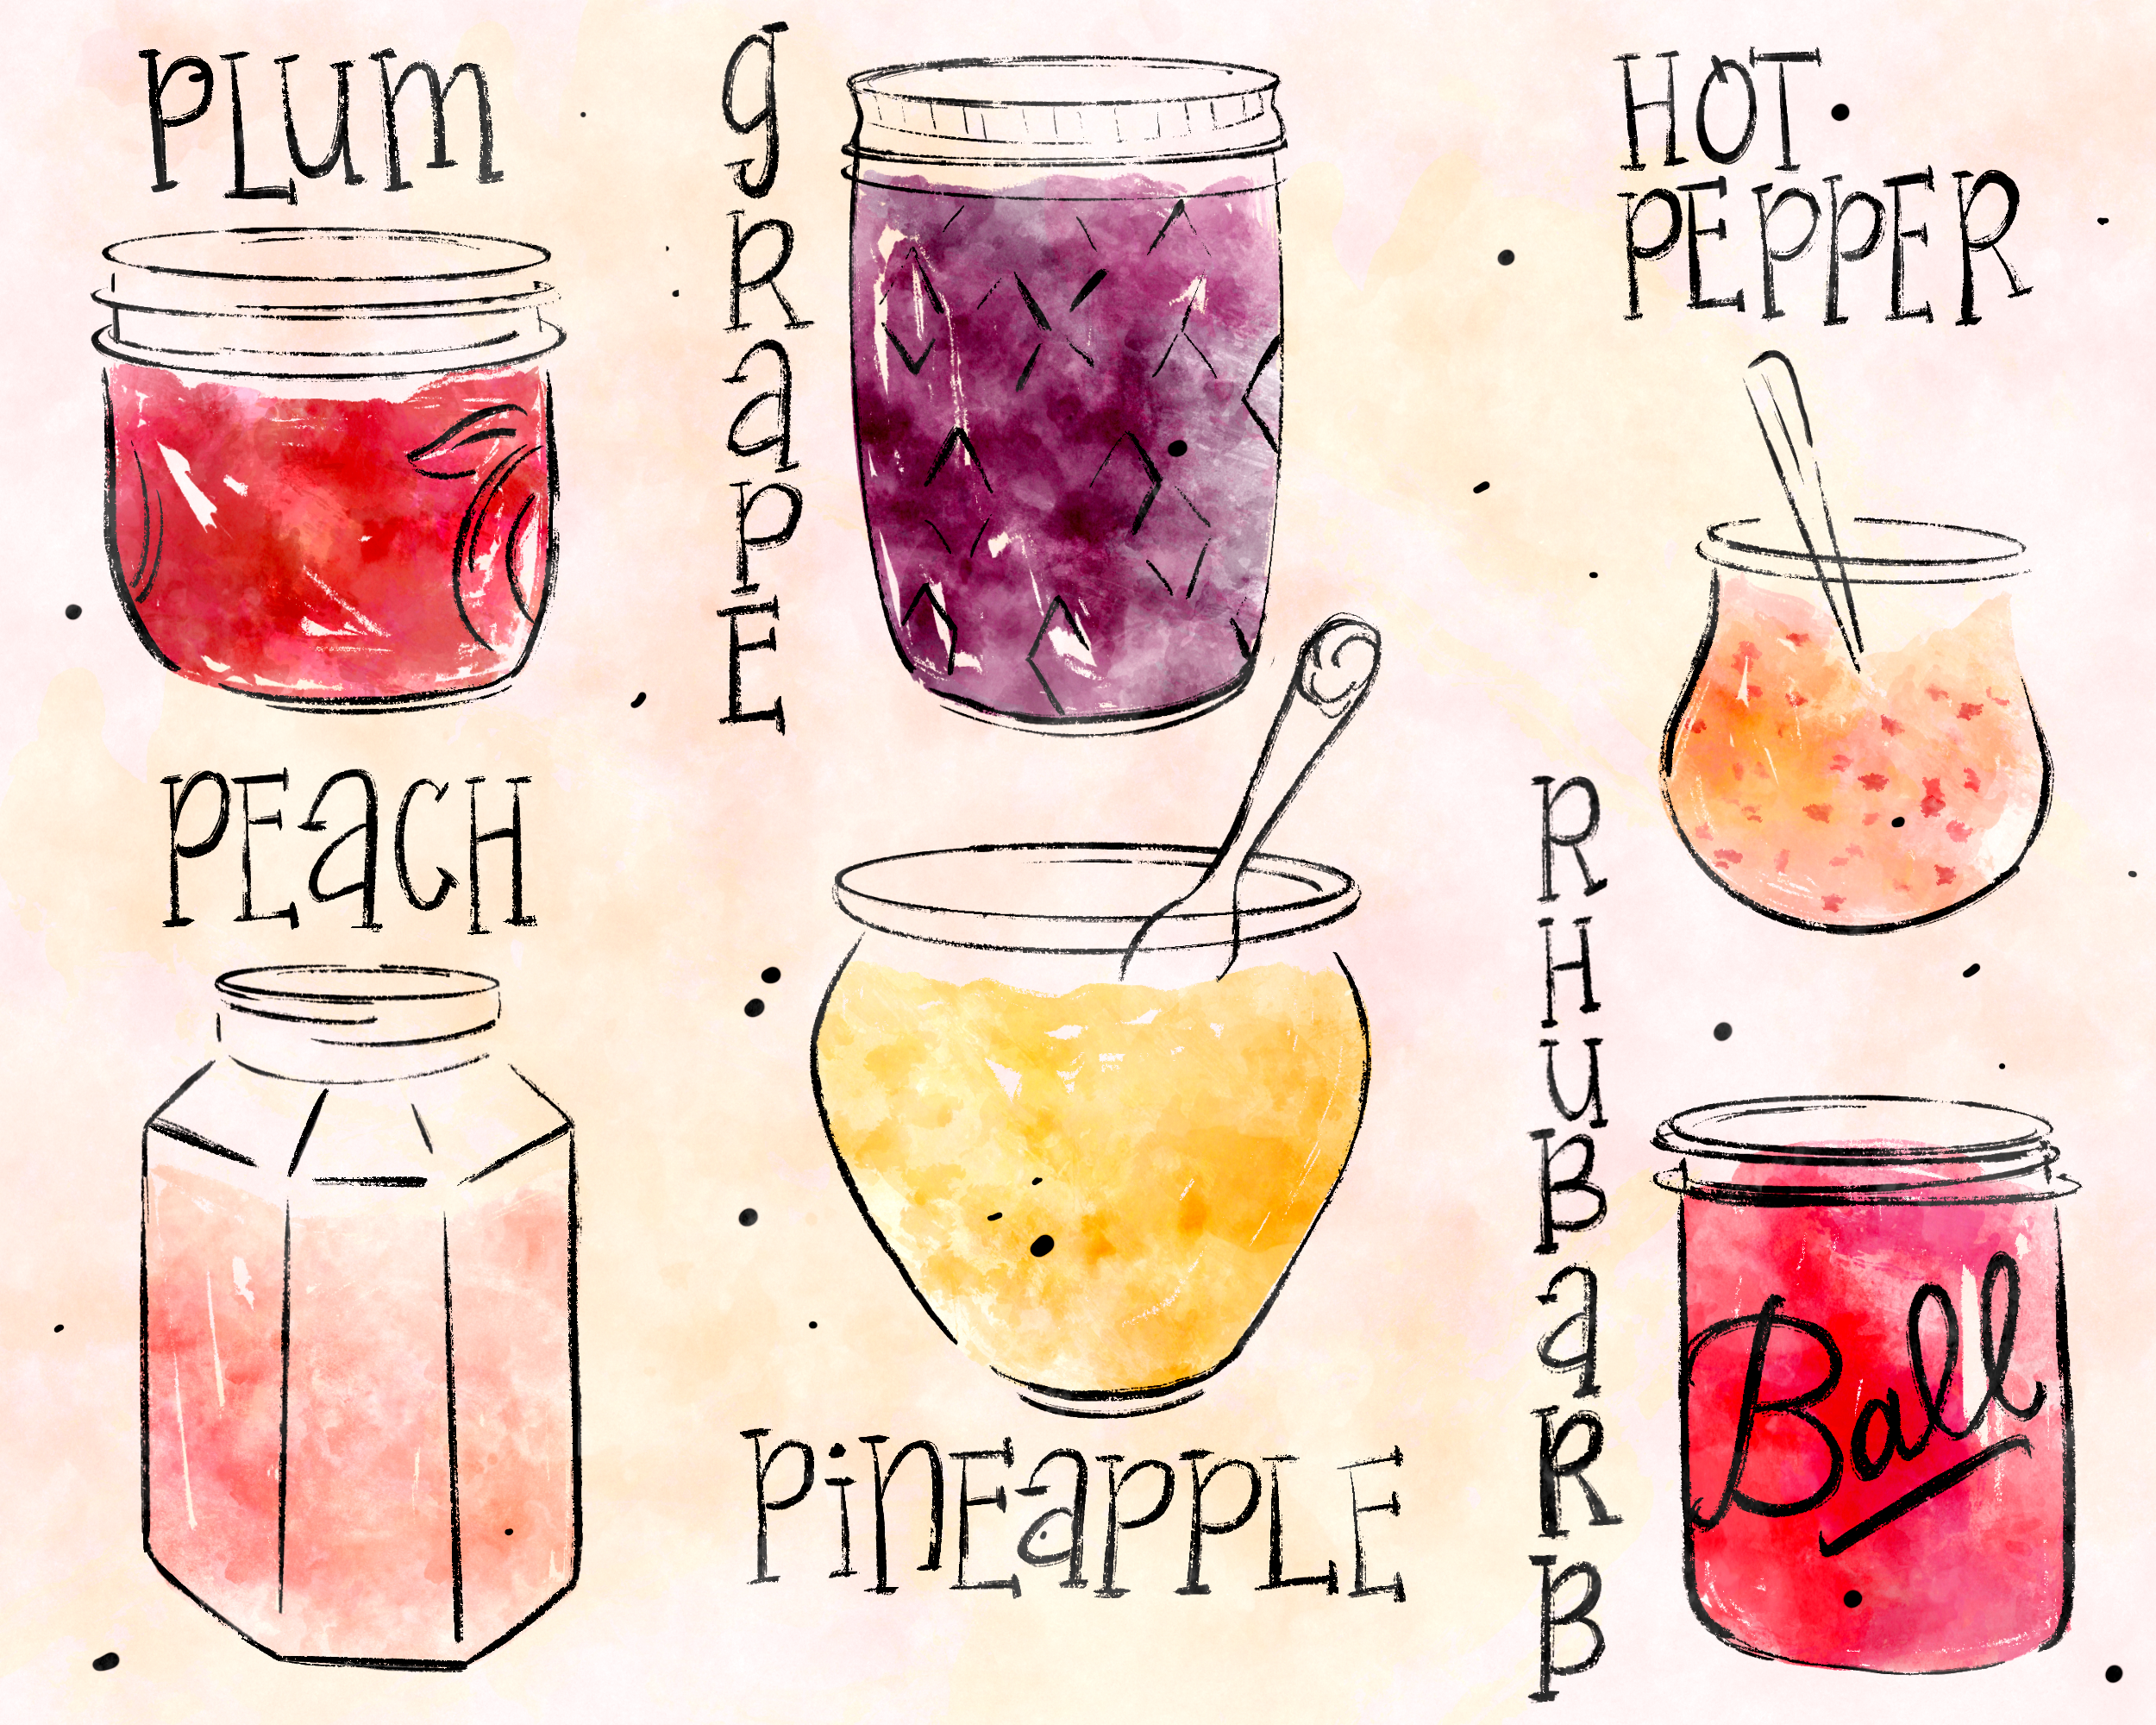 PLUM
gRaPE
HOT
PEPPER
PEaCH
PiNEaPPLE
RHUBaRB
Ball